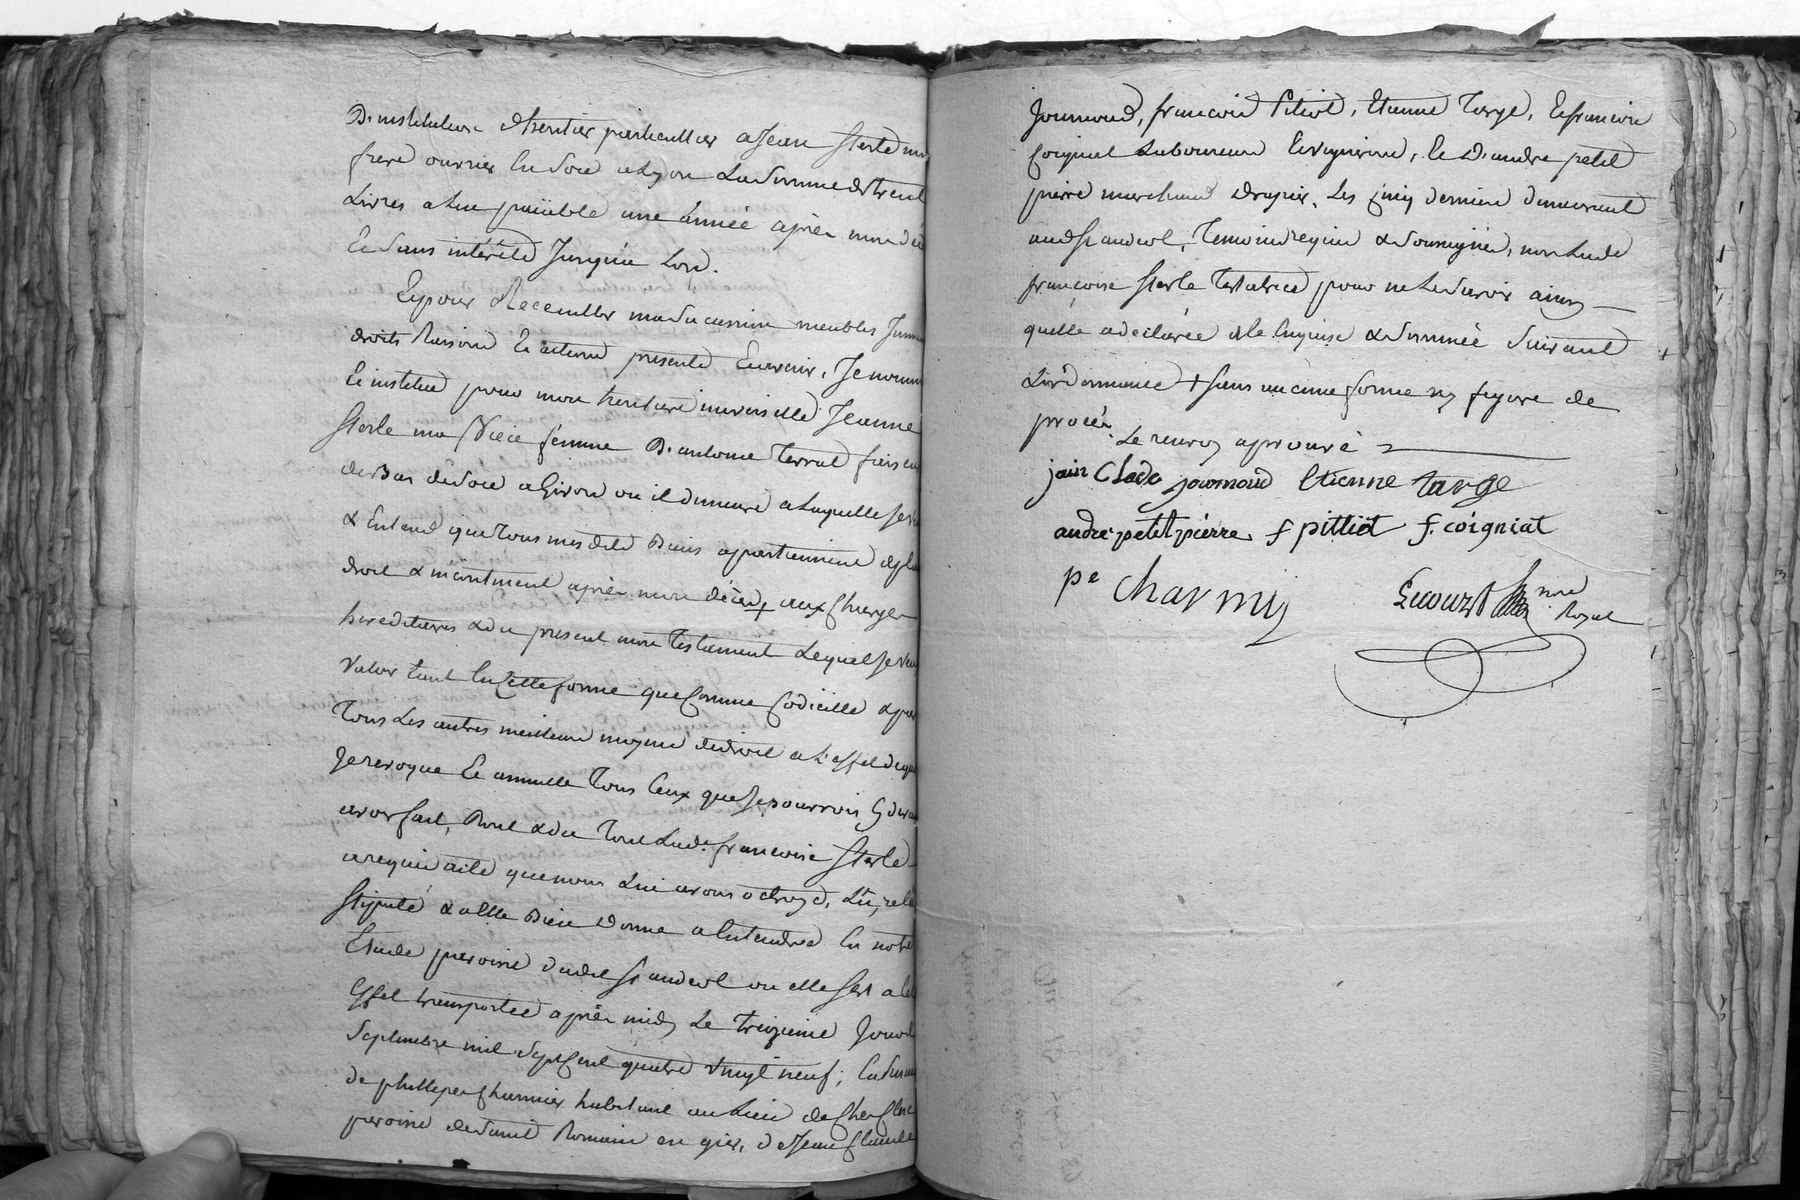 D'institution & heritier particullier a Jean Sterle mon
frere ouvrier en soie a Lyon La somme de trente
Livres a Lui païable une année après mon décè
Et sans intérêts Jusqu'a Lors.
Et pour Receuillir ma succession meubles Immeu
droits Raisons et actions presents Et avenir, Je nomme
Et institue pour mon heritiere universelle Jeanne
Sterle ma Niece femme D'antoine Terrat
de Bas de soie a Givors ou il demeure a Laquelle Je veu
& Entend que tous mes dits Biens appartiennent de plein
droit & incontinent après mon décès, aux Charges
hereditaires & du present mon Testament Lequel Je veux
Valoir tant En Cette forme que Comme Codicille & par
Tous Les autres meilleurs moyens de droit a L'effet de quoi
Je revoque Et annulle Tous Ceux que Je pourrois Cy devant
avoir fait, Dont & du Tout Lade françoise Sterle
a requis acte que nous Lui avons octroyé, Lû, relû
Stipulé & a Elle Bien Donné a Entendre En notre
Etude paroisse dudit St andeol ou elle s'est a cet
Effet transportée après midy Le treizieme Jour de
Septembre mil Sept Cent quatre Vingt neuf; En presence
de phillipe Charmier habitant au Lieu de
paroisse de Saint Romain en gier, de Jean Claude
Journoud, francois Pitiot, Etienne Targe, Et francois
Coignat Laboureurs Et vignerons, Et D'andre petit
pierre marchand Drapier, Les Cinq derniers demeurant
audt St andeol, Temoins requis & Soussignés, non Lade
francoise Sterle Testatrice pour ne Le savoir ainsy
qu'elle a declarée de ce Enquise & Sommée Suivant
L'ordonnance + sans aucune forme ny figure de
procès Le renvoy aprouvé
jain Clade journoud Etienne targe
andre petit pierre f pittiot f. coigniat
pe Charmy
nore
Royal